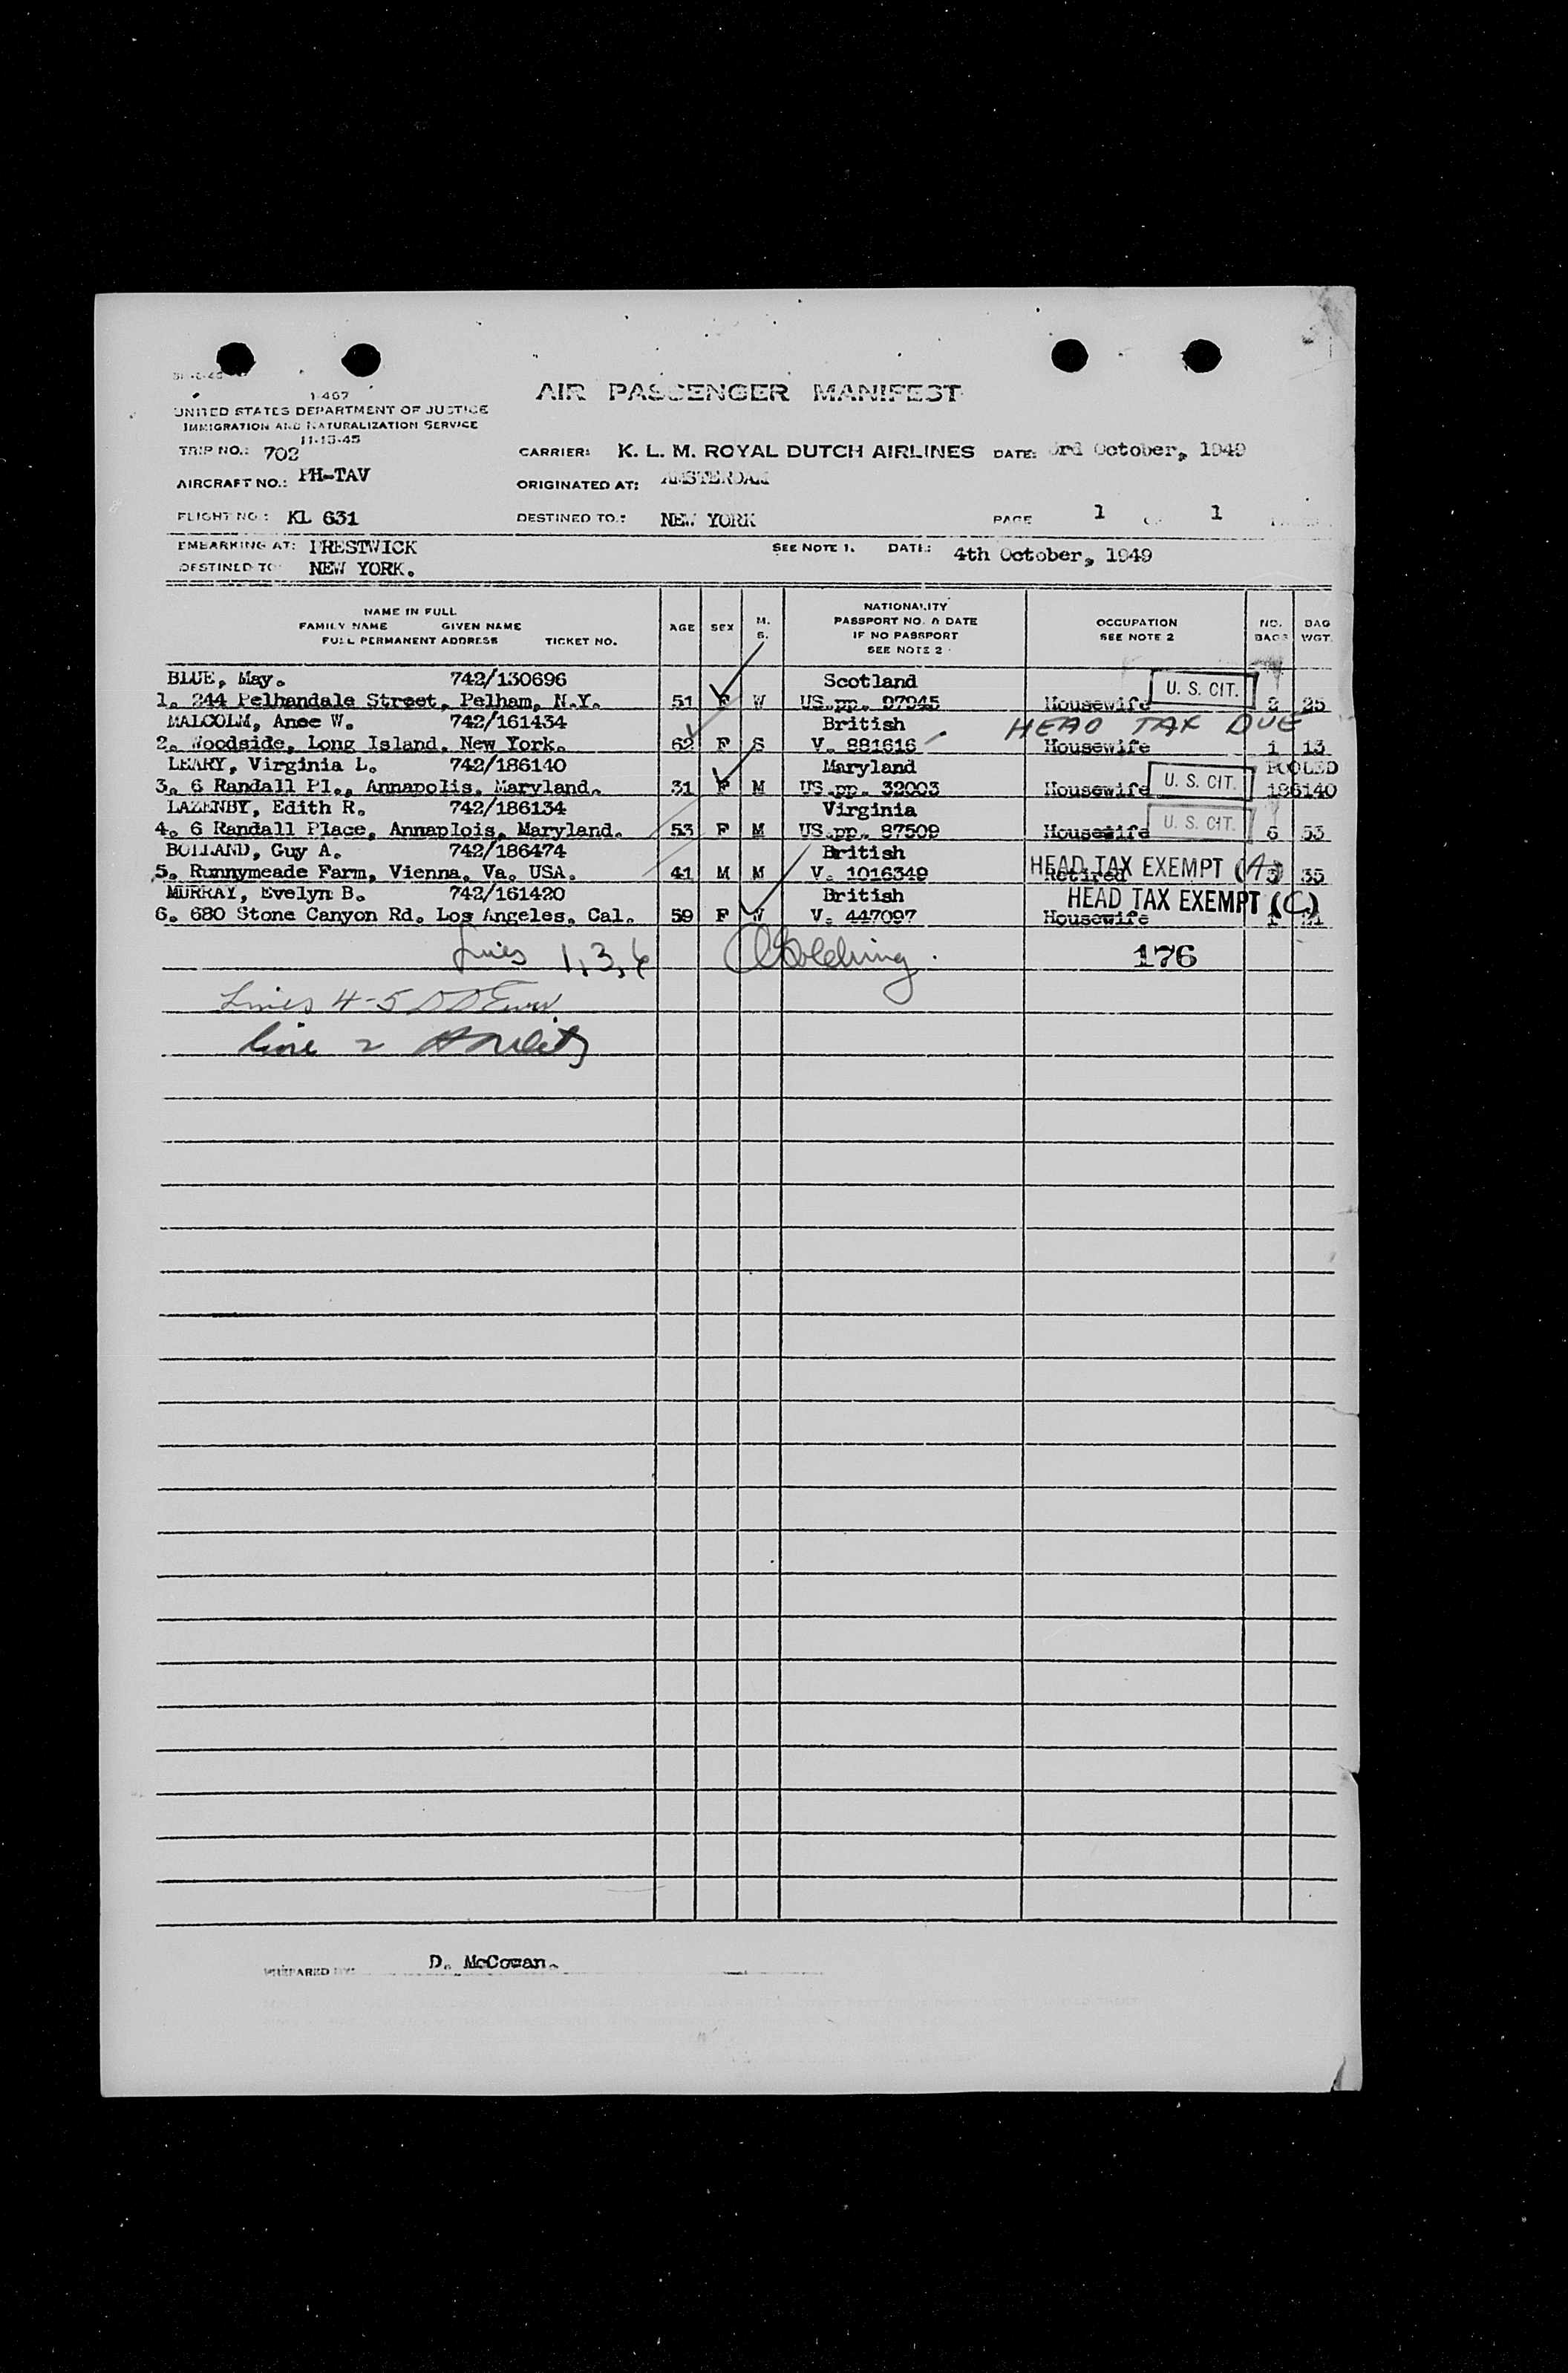 AIR PASSENGER MANIFEST
1-467
UNITED STATES DEPARTMENT OF JUSTICE
IMMIGRATION AND NATURALIZATION SERVICE
11-15-45
TRIP NO.: 702 CARRIER: K. L. M. ROYAL DUTCH AIRLINES DATE: 3rd October, 1949
AIRCRAFT NO.: PH-TAV ORIGINATED AT: AMSTERDAM
FLIGHT NO.: KL 631 DESTINED TO: NEW YORK PAGE 1 OF 1
EMBARKING AT: PRESTWICK SEE NOTE 1. DATE: 4th October, 1949
DESTINED TO: NEW YORK.
NAME IN FULL
FAMILY NAME GIVEN NAME
FULL PERMANENT ADDRESS TICKET NO.
AGE SEX M. S.
NATIONALITY
PASSPORT NO. & DATE
IF NO PASSPORT
SEE NOTE 2
OCCUPATION
SEE NOTE 2
NO. BAGS
BAG WGT.
BLUE, May. 742/130696 Scotland
1. 244 Pelhandale Street, Pelham, N.Y. 51 F W US.pp. 97945 Housewife U. S. CIT. 2 25
MALCOLM, Anee W. 742/161434 British HEAD TAX DUE
2. Woodside, Long Island, New York. 62 F S V. 881616 Housewife 1 13
LEARY, Virginia L. 742/186140 Maryland POOLED
3. 6 Randall Pl., Annapolis, Maryland. 31 F M US.pp. 32003 Housewife U. S. CIT. 186140
LAZENBY, Edith R. 742/186134 Virginia
4. 6 Randall Place, Annaplois, Maryland. 53 F M US.pp. 87509 Housewife U. S. CIT. 6 53
BOLLAND, Guy A. 742/186474 British HEAD TAX EXEMPT (A)
5. Runnymeade Farm, Vienna, Va. USA. 41 M M V. 1016349 Retired 3 35
MURRAY, Evelyn B. 742/161420 British HEAD TAX EXEMPT (C)
6. 680 Stone Canyon Rd. Los Angeles, Cal. 59 F W V. 447097 Housewife 1 21
Lines 1, 3, 6 176
Lines 4-5
line 2
PREPARED BY: D. McCowan.